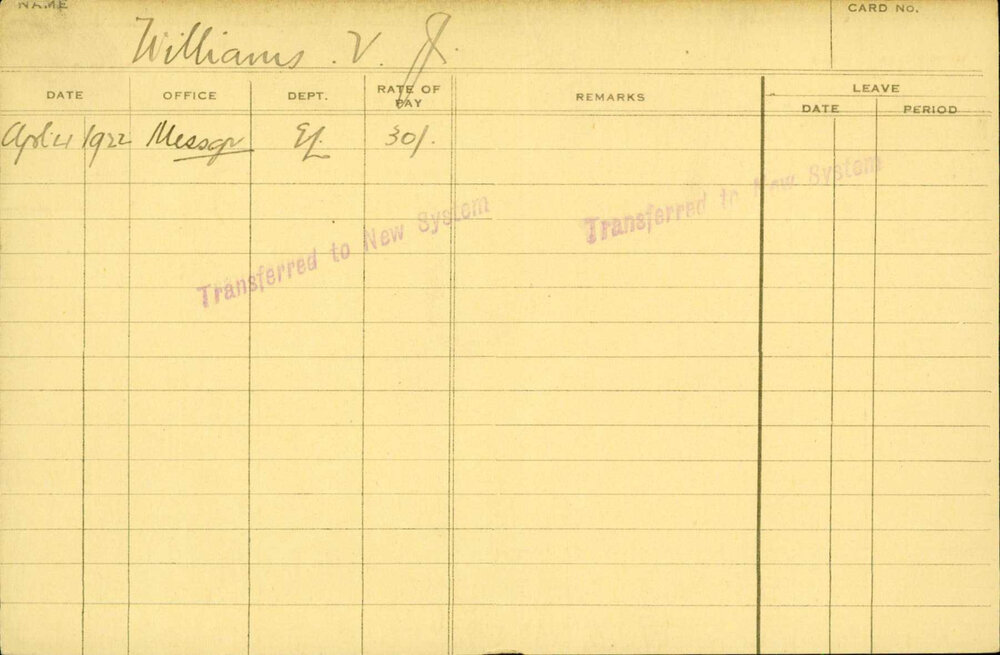 NAME
CARD No.
Williams. V. J.
DATE OFFICE DEPT. RATE OF PAY REMARKS LEAVE
DATE PERIOD
1922 Messgr 30/.
Transferred to New System
Transferred to New System